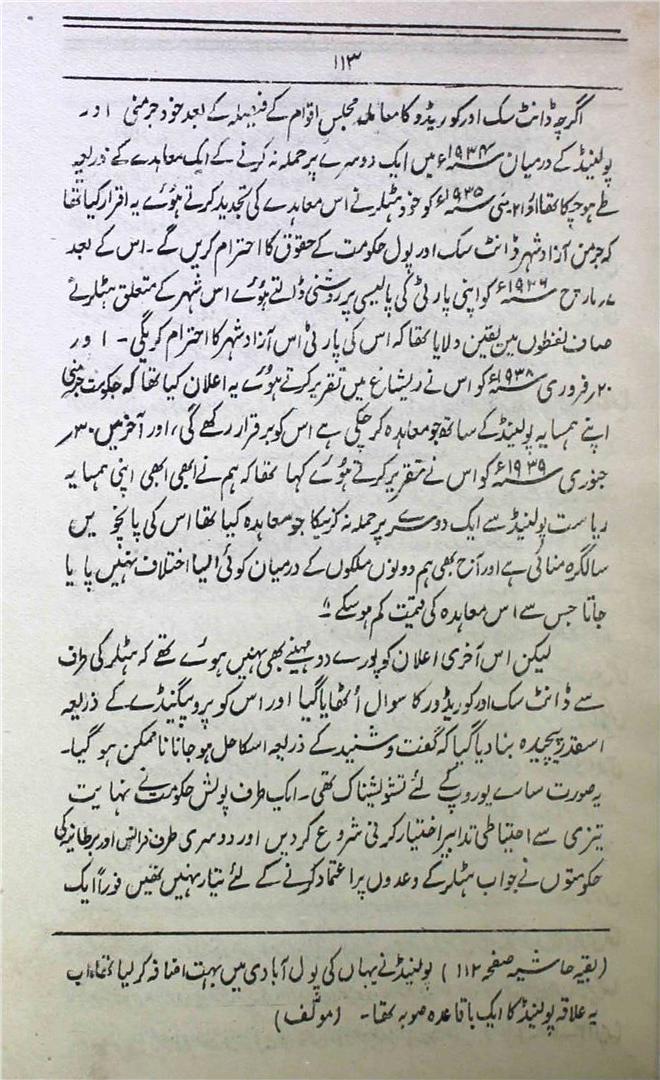 ۱۱۳
اگرچہ ڈانٹ سک اور کوریڈو کا معاملہ مجلس اقوام کے فیصلہ کے بعد خود جرمنی اور
پولینڈ کے درمیان ۱۹۳۴ء میں ایک دوسرے پر حملہ نہ کرنے کے ایک معاہدے کے ذریعہ
طے ہوچکا تھا اور ۲۱ مئی ۱۹۳۵ء کو خود ہٹلر نے اس معاہدے کی تجدید کرتے ہوئے یہ اقرار کیا تھا
کہ جرمن آزاد شہر ڈانٹ سک اور پول حکومت کے حقوق کا احترام کریں گے۔ اس کے بعد
۷ مارچ ۱۹۳۶ء کو اپنی پارٹی کی پالیسی پر روشنی ڈالتے ہوئے اس شہر کے متعلق ہٹلر نے
صاف لفظوں میں یقین دلایا تھا کہ اس کی پارٹی اس آزاد شہر کا احترام کریگی۔ اور
۲۰ فروری ۱۹۳۸ء کو اس نے ریشتاغ میں تقریر کرتے ہوئے یہ اعلان کیا تھا کہ حکومت جرمنی
اپنے ہمسایہ پولینڈ کے ساتھ جو معاہدہ کرچکی ہے اس کو برقرار رکھے گی، اور آخر میں ۳۰
جنوری ۱۹۳۹ء کو اس نے تقریر کرتے ہوئے کہا تھا کہ ہم نے ابھی ابھی اپنی ہمسایہ
ریاست پولینڈ سے ایک دوسرے پر حملہ نہ کرنیکا جو معاہدہ کیا تھا اس کی پانچویں
سالگرہ منائی ہے اور آج بھی ہم دونوں ملکوں کے درمیان کوئی ایسا اختلاف نہیں پایا
جاتا جس سے اس معاہدہ کی قیمت کم ہوسکے"
لیکن اس آخری اعلان کو پورے دو مہینے بھی نہیں ہوئے تھے کہ ہٹلر کی طرف
سے ڈانٹ سک اور کوریڈور کا سوال اُٹھایا گیا اور اس کو پروپیگنیڈے کے ذریعہ
اسقدر پیچیدہ بنا دیا گیا کہ گفت و شنید کے ذریعہ اسکا حل ہوجانا ناممکن ہوگیا۔
یہ صورت سارے یوروپ کے لئے تشویشناک تھی۔ ایک طرف پولش حکومت نے نہایت
تیزی سے احتیاطی تدابیر اختیار کرنی شروع کردیں اور دوسری طرف فرانس اور برطانیہ کی
حکومتوں نے جو اب ہٹلر کے وعدوں پر اعتماد کرنے کے لئے تیار نہیں تھیں فوراً ایک
(بقیہ حاشیہ صفحہ ۱۱۲) پولینڈ نے یہاں کی پول آبادی میں بہت اضافہ کرلیا تھا اب
یہ علاقہ پولینڈ کا ایک باقاعدہ صوبہ تھا۔ (مولّف)